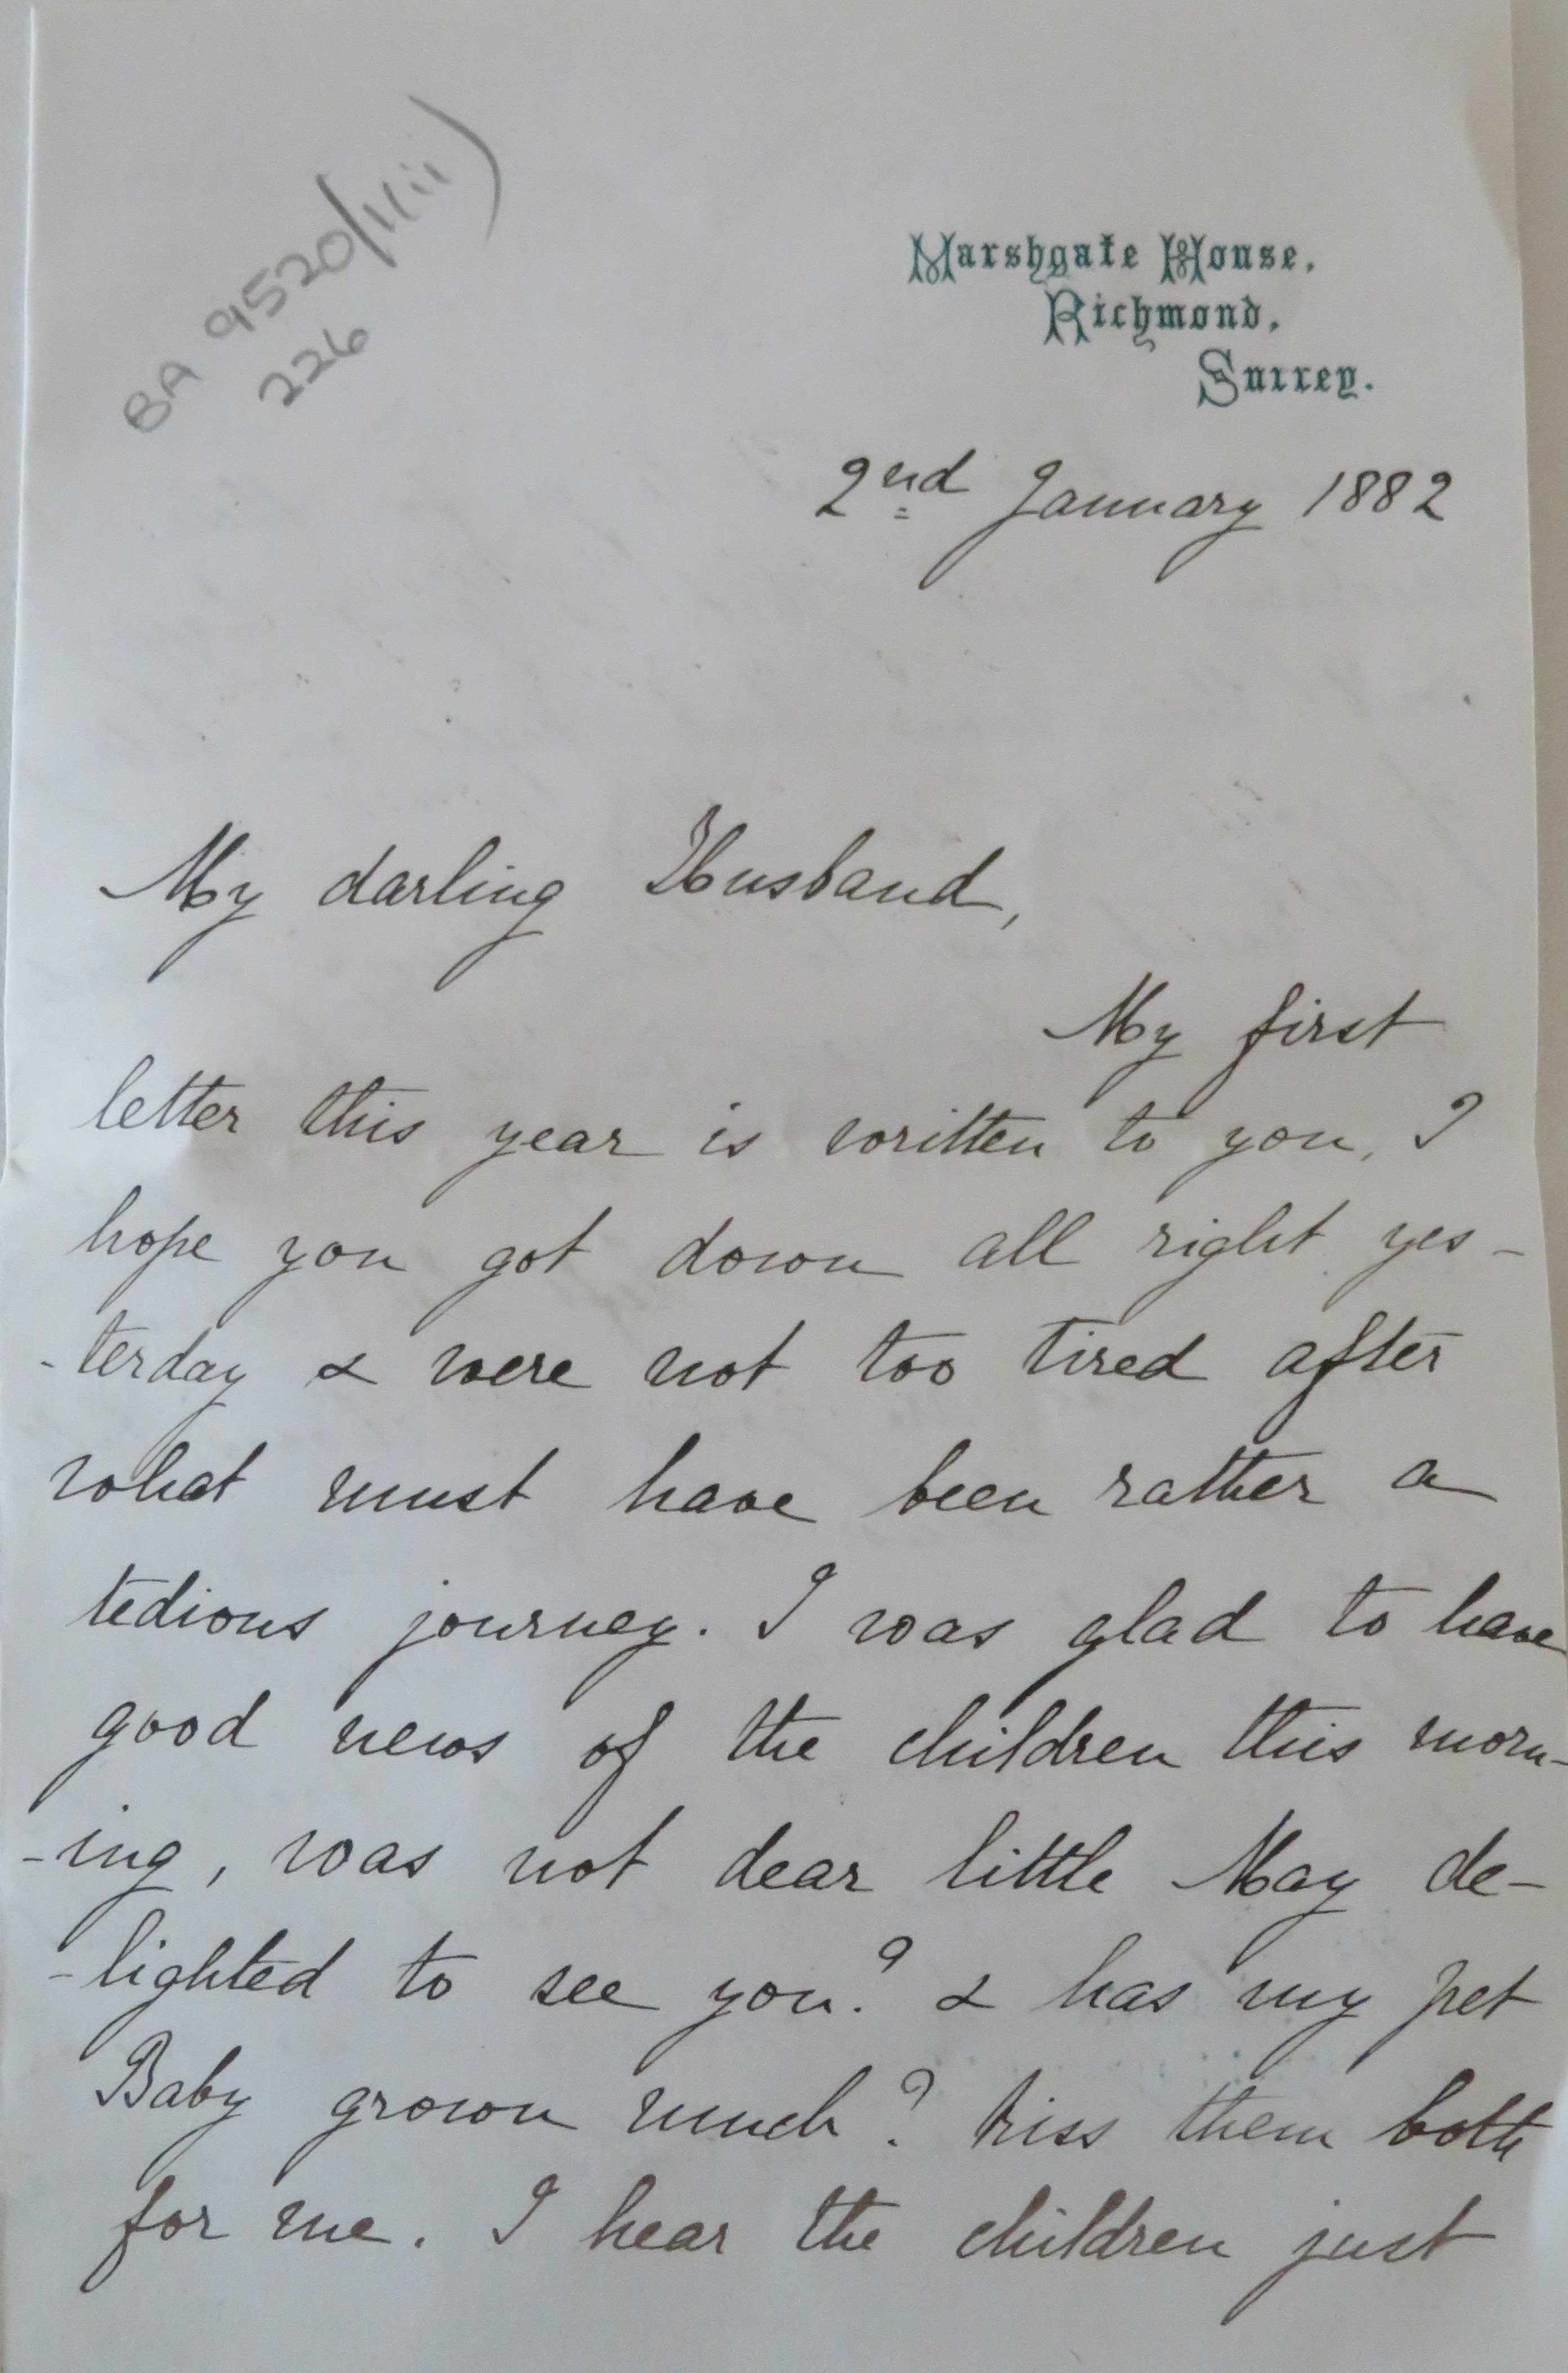 BA 9520/1(ii)
226
Marshgate House,
Richmond,
Surrey.
2nd January 1882
My darling Husband,
My first
letter this year is written to you, I
hope you got down all right yes-
-terday & were not too tired after
what must have been rather a
tedious journey. I was glad to have
good news of the children this morn-
-ing, was not dear little May de-
-lighted to see you? & has my pet
Baby grown much? kiss them both
for me. I hear the children just